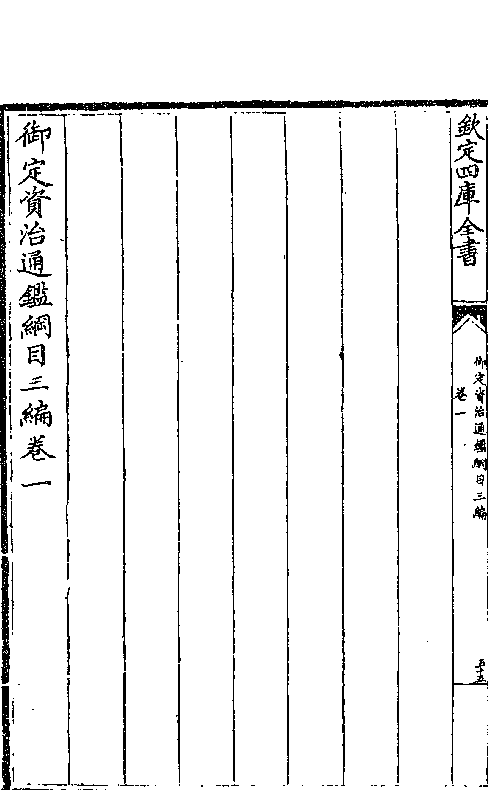 欽定四庫全書
御定資治通鑑綱目三編
卷一
五十五
御定資治通鑑綱目三編卷一